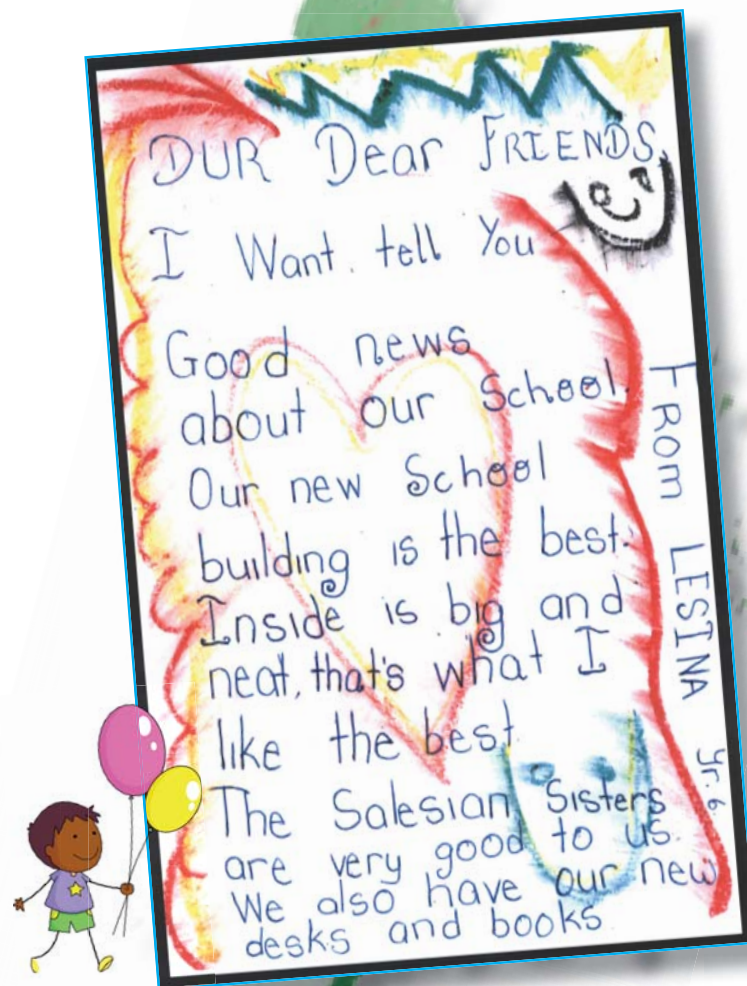 DUR Dear FRIENDS,
I Want. tell You
Good news
about our School.
Our new School
building is the best.
Inside is big and
neat, that's what I
like the best.
The Salesian Sisters
are very good to us.
We also have our new
desks and books
FROM LESINA Yr. 6